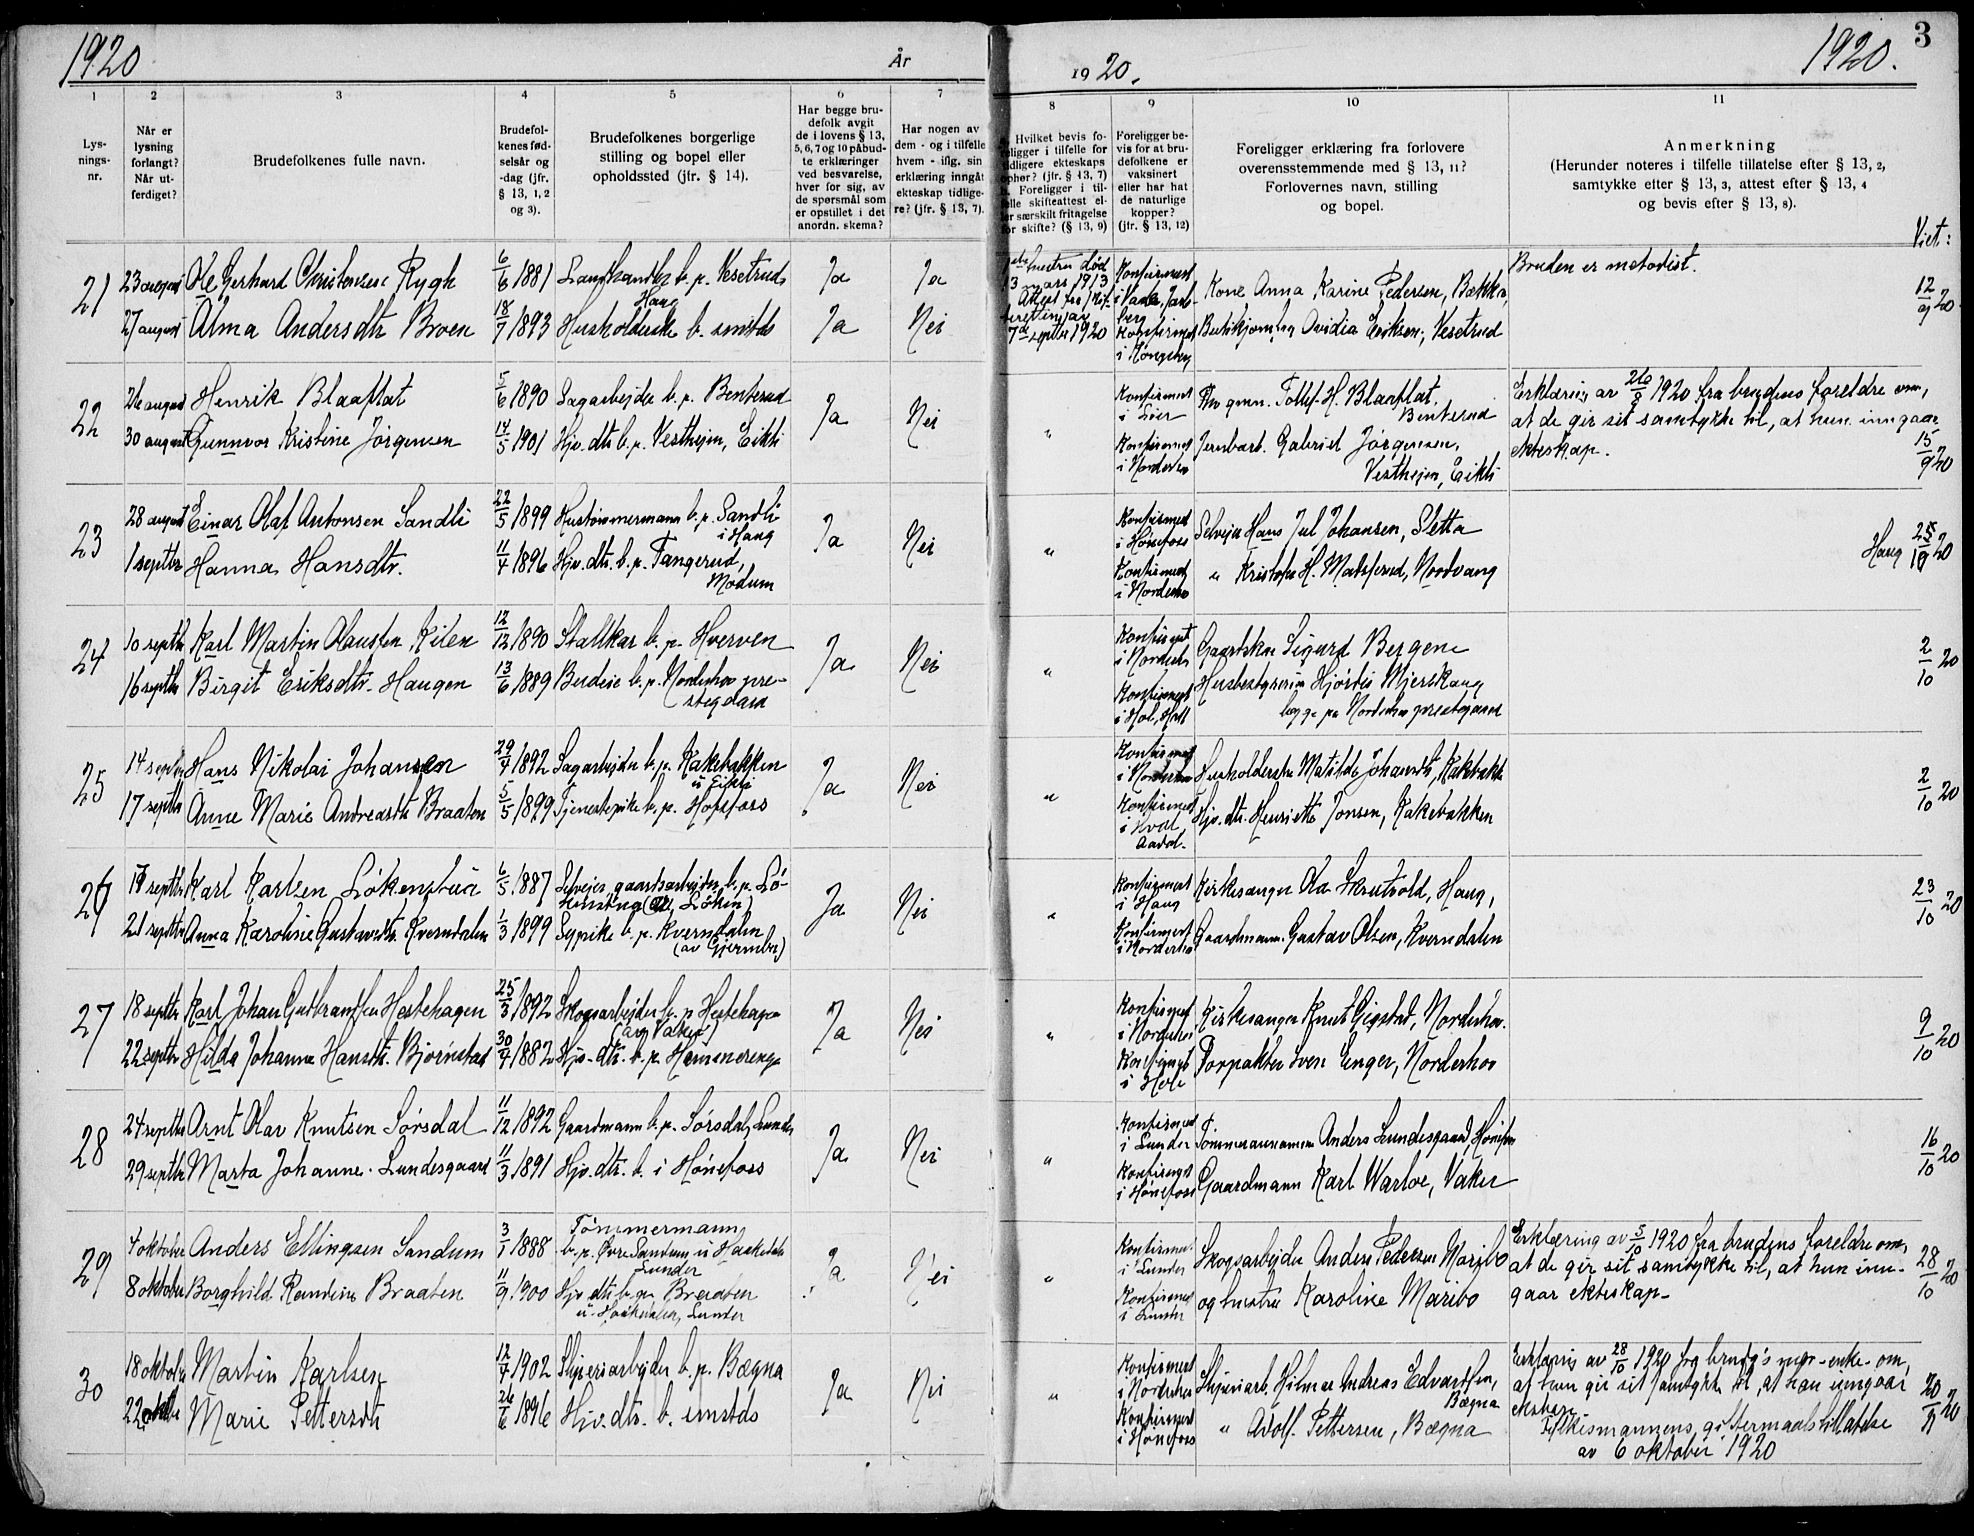 1920
År
1920.
1920.
3
1
2
3
4
5
6
7
8
9
10
11
Lys-
nings-
nr.
Når er
lysning
forlangt?
Når ut-
ferdiget?
Brudefolkenes fulle navn.
Brudefol-
kenes fød-
selsår og
-dag (jfr.
§ 13, 1, 2
og 3).
Brudefolkenes borgerlige
stilling og bopel eller
opholdssted (jfr. § 14).
Har begge bru-
defolk avgit
de i lovens § 13,
5, 6, 7 og 10 påbud-
te erklæringer
ved besvarelse,
hver for sig, av
de spørsmål som
er opstillet i det
anordn. skema?
Har nogen av
dem - og i tilfelle
hvem - iflg. sin
erklæring inngåt
ekteskap tidlige-
re? (jfr. § 13, 7).
Hvilket bevis fo-
religger i tilfelle for
tidligere ekteskaps
ophør? (jfr. § 13, 7)
Foreligger i til-
felle skifteattest el-
ler særskilt fritagelse
for skifte? (§ 13, 9)
Foreligger be-
vis for at bru-
defolkene er
vaksinert
eller har hat
de naturlige
kopper?
(jfr. § 13, 12)
Foreligger erklæring fra forlovere
overensstemmende med § 13, 11?
Forlovernes navn, stilling
og bopel.
Anmerkning
(Herunder noteres i tilfelle tillatelse efter § 13, 2,
samtykke efter § 13, 3, attest efter § 13, 4
og bevis efter § 13, 8).
Viet:
21
23 august Ole Gerhard Christensen Rygh 6/6 1881 Landhandler b. p. Vesetrud, Haug Ja Ja
27 august Alma Andersdtr Broen 18/7 1893 Husholderske b. smstds Ja Nei
hustru død
13 mars 1913
septbr 1920
Konfirmert
Konfirmert
Kone Anna Karine Pedersen, Bakke,
Ovidia Eriksen, Vesetrud
Bruden er metodist.
12/9 20
22
26 august Henrik Blaaflat 5/6 1890 Sagarbejder b. p. Benterud Ja Nei
30 august Gunnvor Kristine Jørgensen 14/5 1901 Hjv. dtr b. p. Vestheim, Eikli
"
Konfirmert
i Lier
Konfirmert
i Norderhov
Tollef H. Blaaflat,
Benterud
Jernbarb. Gabriel Jørgensen,
Vestheim, Eikli
Erklæring av 26/8 1920 fra brudens foreldre om,
at de gir sit samtykke til, at hun inngaar
ekteskap.
15/9 20
23
28 august Einar Olaf Antonsen Sandli 22/5 1899 Hustømmermann b. p. Sandli i Haug Ja Nei
1 septbr Hanna Hansdtr. 11/4 1896 Hjv. dtr. b. p. Tangerud, Modum
"
Konfirmert
i Hønefoss
Konfirmert
i Norderhov
Selveier Hans Jul Johansen, Sletta
" Kristofer H. Madserud, Nordvang
Haug 25/9 20
24
10 septbr Karl Martin Olaussen Kilen 12/12 1890 Stallkar b. p. Hverven Ja Nei
16 septbr Birgit Eriksdtr. Haugen 13/6 1889 Budeie b. p. Norderhov pre-
stegaard
"
Konfirmert
i Norderh.
Konfirmert
i Hol, Hall
Sigurd Bergene
Husbestyrerin Hjørdis Mjerskaug
begge pa Norderhov prestegaard
2/10 20
25
14 septbr Hans Nikolai Johansen 29/4 1892 Sagarbejder b. p. Kakebakken u Eikli Ja Nei
17 septbr Anne Marie Andreasdtr Braaten 5/5 1899 Tjenestepike b. p. Hofsfoss
"
Konfirmert
i Norderhov
Konfirmert
i Hval,
Aadal.
Husholderske Matilde Johansdtr, Kakebakk
Hjv. dtr. Henriette Jonsen, Kakebakken
2/10 20
26
septbr Karl Karlsen Løkenstua 6/5 1887 Selveier, gaardsarbejder b. p. Lø-
kenstua (av Løken) Ja Nei
21 septbr Anna Karoline Gustavsdtr. Kverndalen 1/3 1899 Sypike b. p. Kverndalen
(av Gjermbo)
"
Konfirmert
i Haug
Konfirmert
i Norderhov
Kirkesanger Ola Skrutvold, Haug,
Gaardmann Gustav Olsen, Kverndalen
23/10 20
27
18 septbr Karl Johan Gulbrandsen Hestehagen 25/3 1892 Skogsarbejder b. p Hestehagen
(av Vaker) Ja Nei
22 septbr Hilda Johanne Hansdtr. Bjørnstad 30/4 1882 Hjv. dtr. b. p. Hemmerenge
"
Konfirmert
i Norderhov
Konfirmert
i Hole
Kirkesanger Knut Gigstad, Norderhov.
Forpakter Sven Enger, Norderhov
9/10 20
28
24 septbr Arnt Olav Knutsen Sørsdal 11/12 1892 Gaardmann b. p. Sørsdal, Lunder Ja Nei
29 septbr Marta Johanne Lundesgaard 11/3 1891 Hjv. dtr. b. i Hønefoss
"
Konfirmert
i Lunder
Konfirmert
i Hønefoss
Anders Lundesgaard, Hønefoss
Gaardmann Karl Warloe, Vaker
16/10 20
29
4 oktober Anders Ellingsen Sandum 3/1 1888 Tømmermann
b. p. Øvre Sandum u Haakedalen
Lunder Ja Nei
8 oktober Borghild Randine Braaten 11/9 1900 Hjv. dtr b. p. Braaten
u. Haakedalen, Lunder
"
Konfirmert
i Lunder
Konfirmert
i Lunder
Skogsarbejder Anders Pedersen Maribo
og hustru Karoline Maribo
Erklæring av 5/10 1920 fra brudens foreldre om,
at de gir sit samtykke til, at hun inn-
gaar ekteskap.
28/10 20
30
18 oktober Martin Karlsen 12/4 1902 Sliperiarbejder b. p. Bægna Ja Nei
22 oktbr Marie Pettersdtr 26/6 1896 Hjv. dtr. b. smstds
"
Konfirmert
i Norderhov
Konfirmert
i Hønefoss
Sliperiarb. Hilmar Andreas Edvardsen,
Bægna
" Adolf Pettersen, Bægna
Erklæring av 28/10 1920 fra brudg's mor - enke - om,
at hun gir sit samtykke til, at han inngaar
ekteskap.
Fylkesmannens giftermaalstillatelse
av 6 oktober 1920
20/11 20